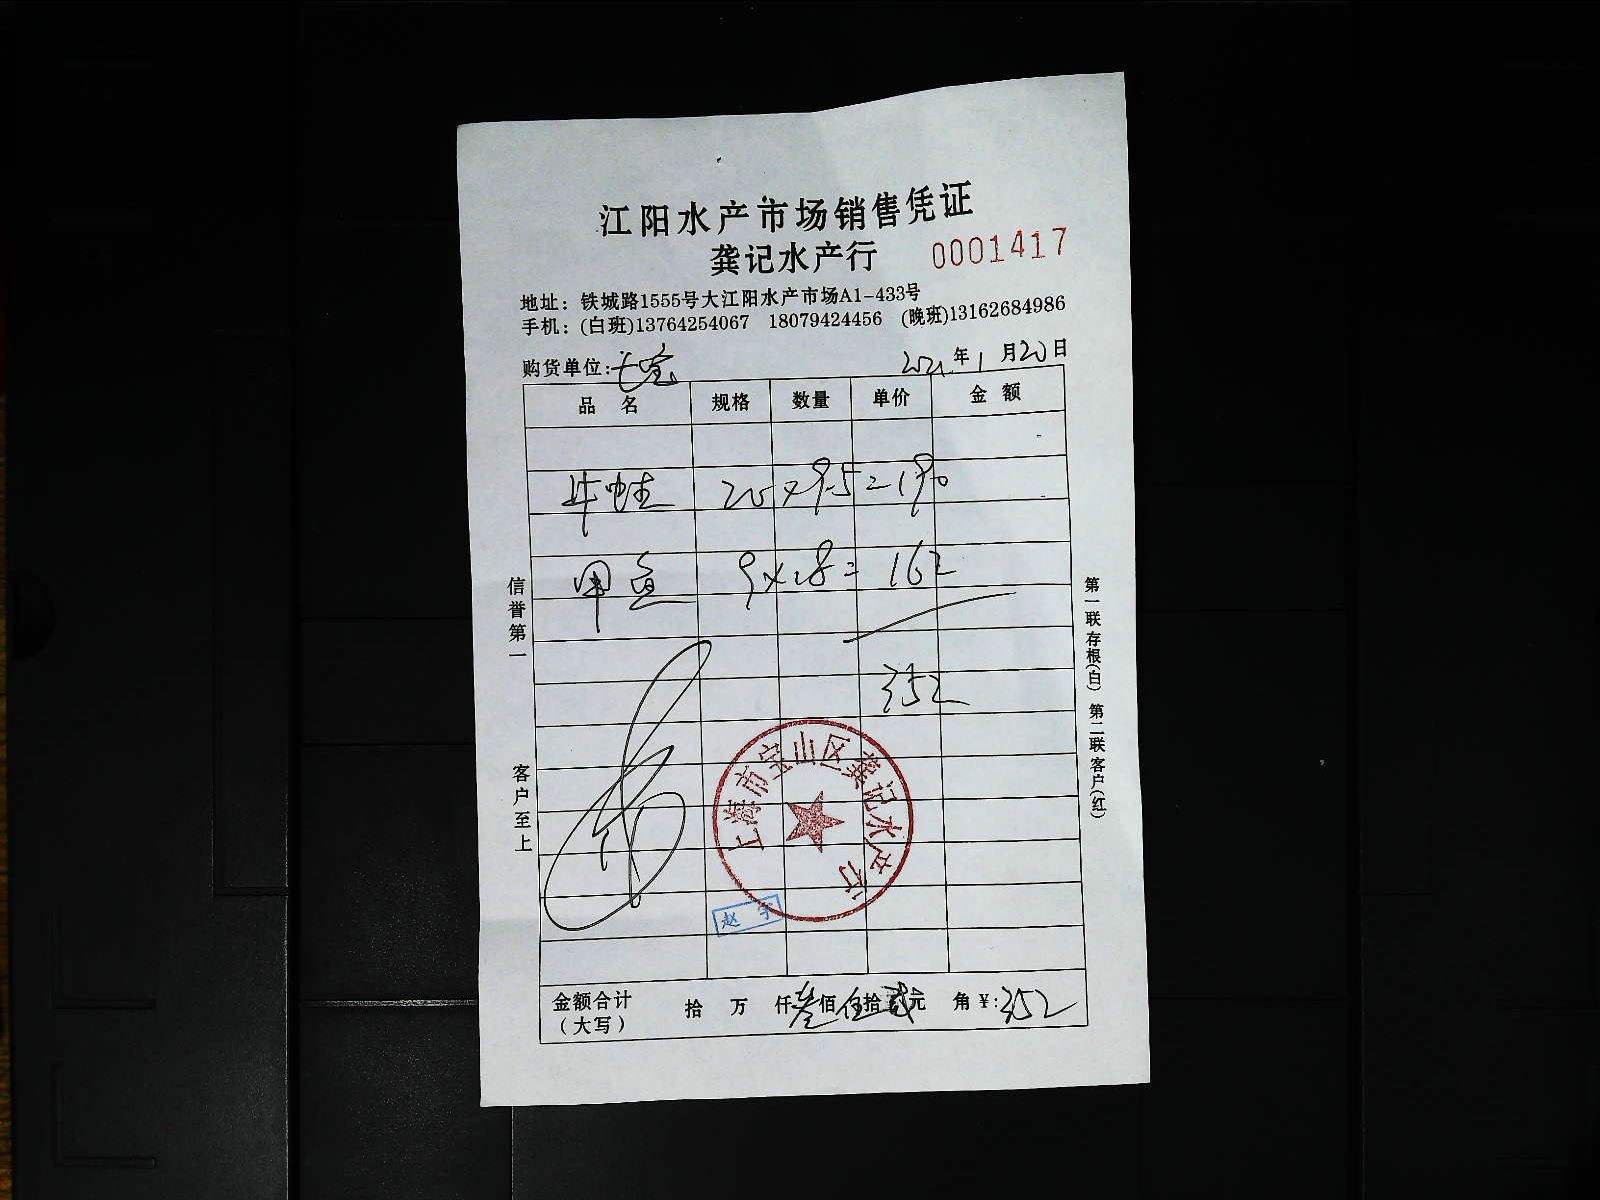 江阳水产市场销售凭证
龚记水产行 0001417
地址：铁城路1555号大江阳水产市场A1-433号
手机：(白班)13764254067 18079424456 (晚班)13162684986
购货单位: 2021年1月20日
品 名 规格 数量 单价 金 额
牛蛙 20×9.5=190
甲鱼 9×18=162
352
信誉第一
客户至上
第一联存根(白) 第二联客户(红)
上海市宝山区龚记水产行
赵 宇
金额合计 拾 万 仟叁佰伍拾贰元 角¥:352
(大写)